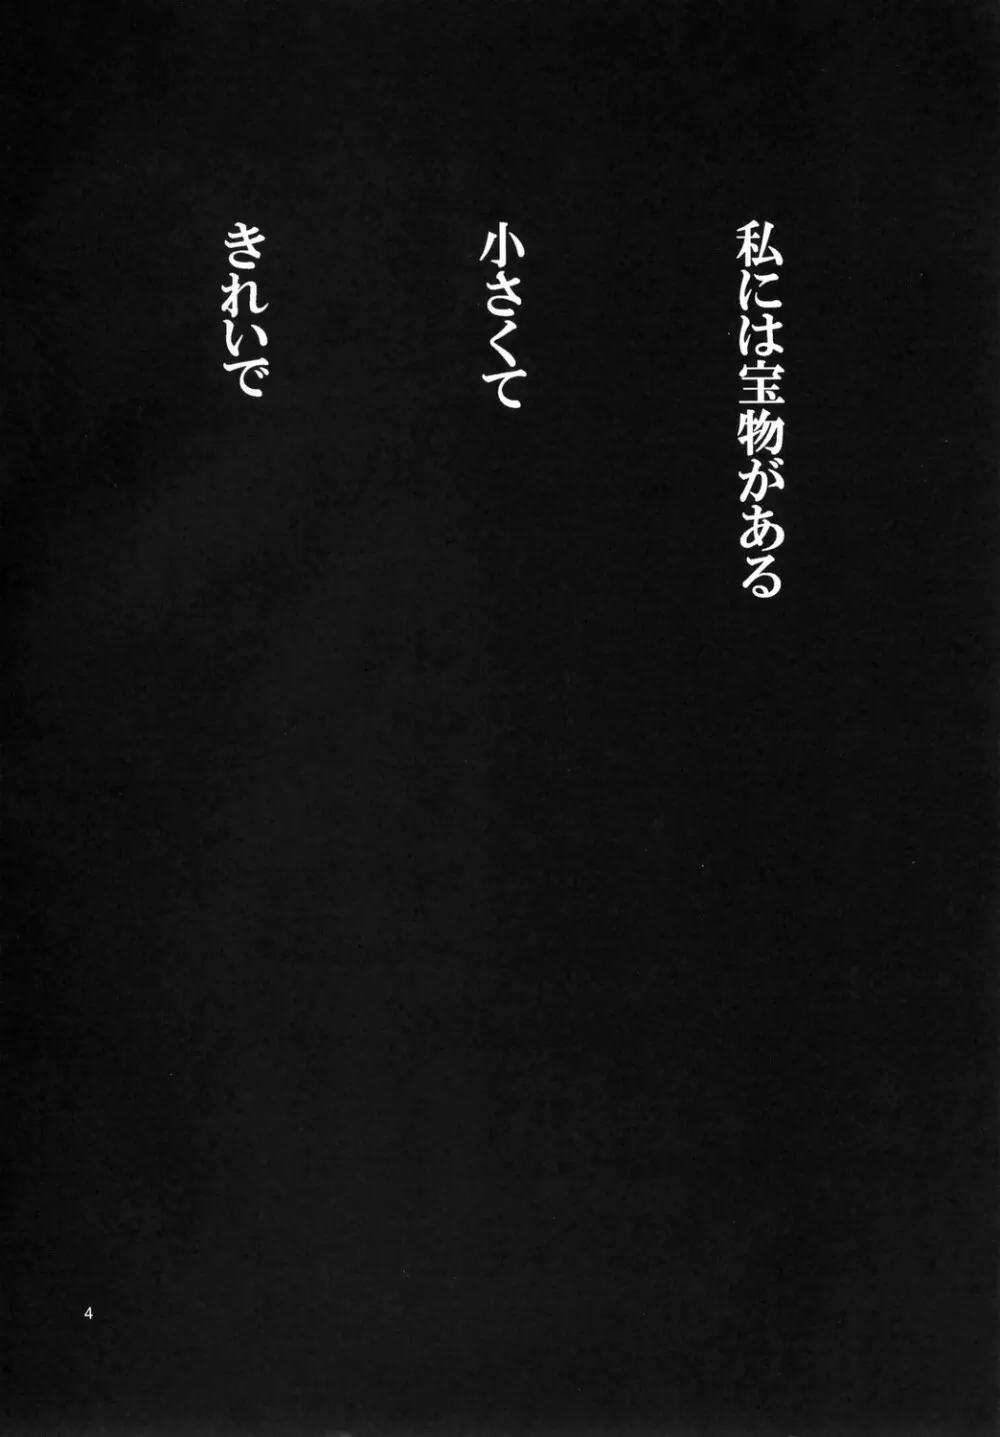 私には宝物がある
小さくて
きれいで
4